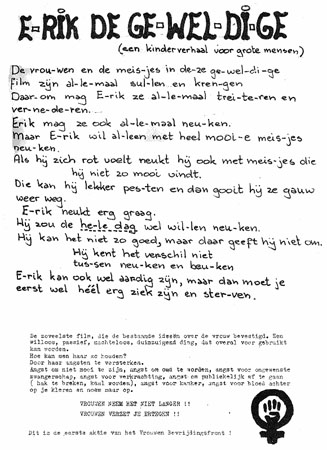 E-RIK DE GE-WEL-DI-GE
(een kinderverhaal voor grote mensen)
De vrou-wen en de meis-jes in de-ze ge-wel-di-ge
film zijn al-le-maal sul-len en kren-gen
Daar-om mag E-rik ze al-le-maal trei-te-ren en
ver-ne-de-ren...
Erik mag ze ook al-le-maal neu-ken.
Maar E-rik wil al-leen met heel mooi-e meis-jes
neu-ken.
Als hij zich rot voelt neukt hij ook met meis-jes die
hij niet zo mooi vindt.
Die kan hij lekker pes-ten en dan gooit hij ze gauw
weer weg.
E-rik neukt erg graag.
Hij zou de he-le dag wel wil-len neu-ken.
Hij kan het niet zo goed, maar daar geeft hij niet om.
Hij kent het verschil niet
tus-sen neu-ken en beu-ken
E-rik kan ook wel aardig zijn, maar dan moet je
eerst wel héél erg ziek zijn en ster-ven.
De zoveelste film, die de bestaande ideeën over de vrouw bevestigd. Een
willoos, passief, machteloos, dubszuigend ding, dat overal voor gebruikt
kan worden.
Hoe kan men haar zo houden?
Door haar angsten te versterken.
Angst om niet mooi te zijn, angst om oud te worden, angst voor ongewenste
zwangerschap, angst voor verkrachting, angst om publiekelijk af te gaan
( hak te breken, kaal worden), angst voor kanker, angst voor bloed achter
op je kleren en noem maar op.
VROUWEN NEEM HET NIET LANGER !!
VROUWEN VERZET JE ERTEGEN !!
Dit is de eerste aktie van het Vrouwen Bevrijdingsfront !